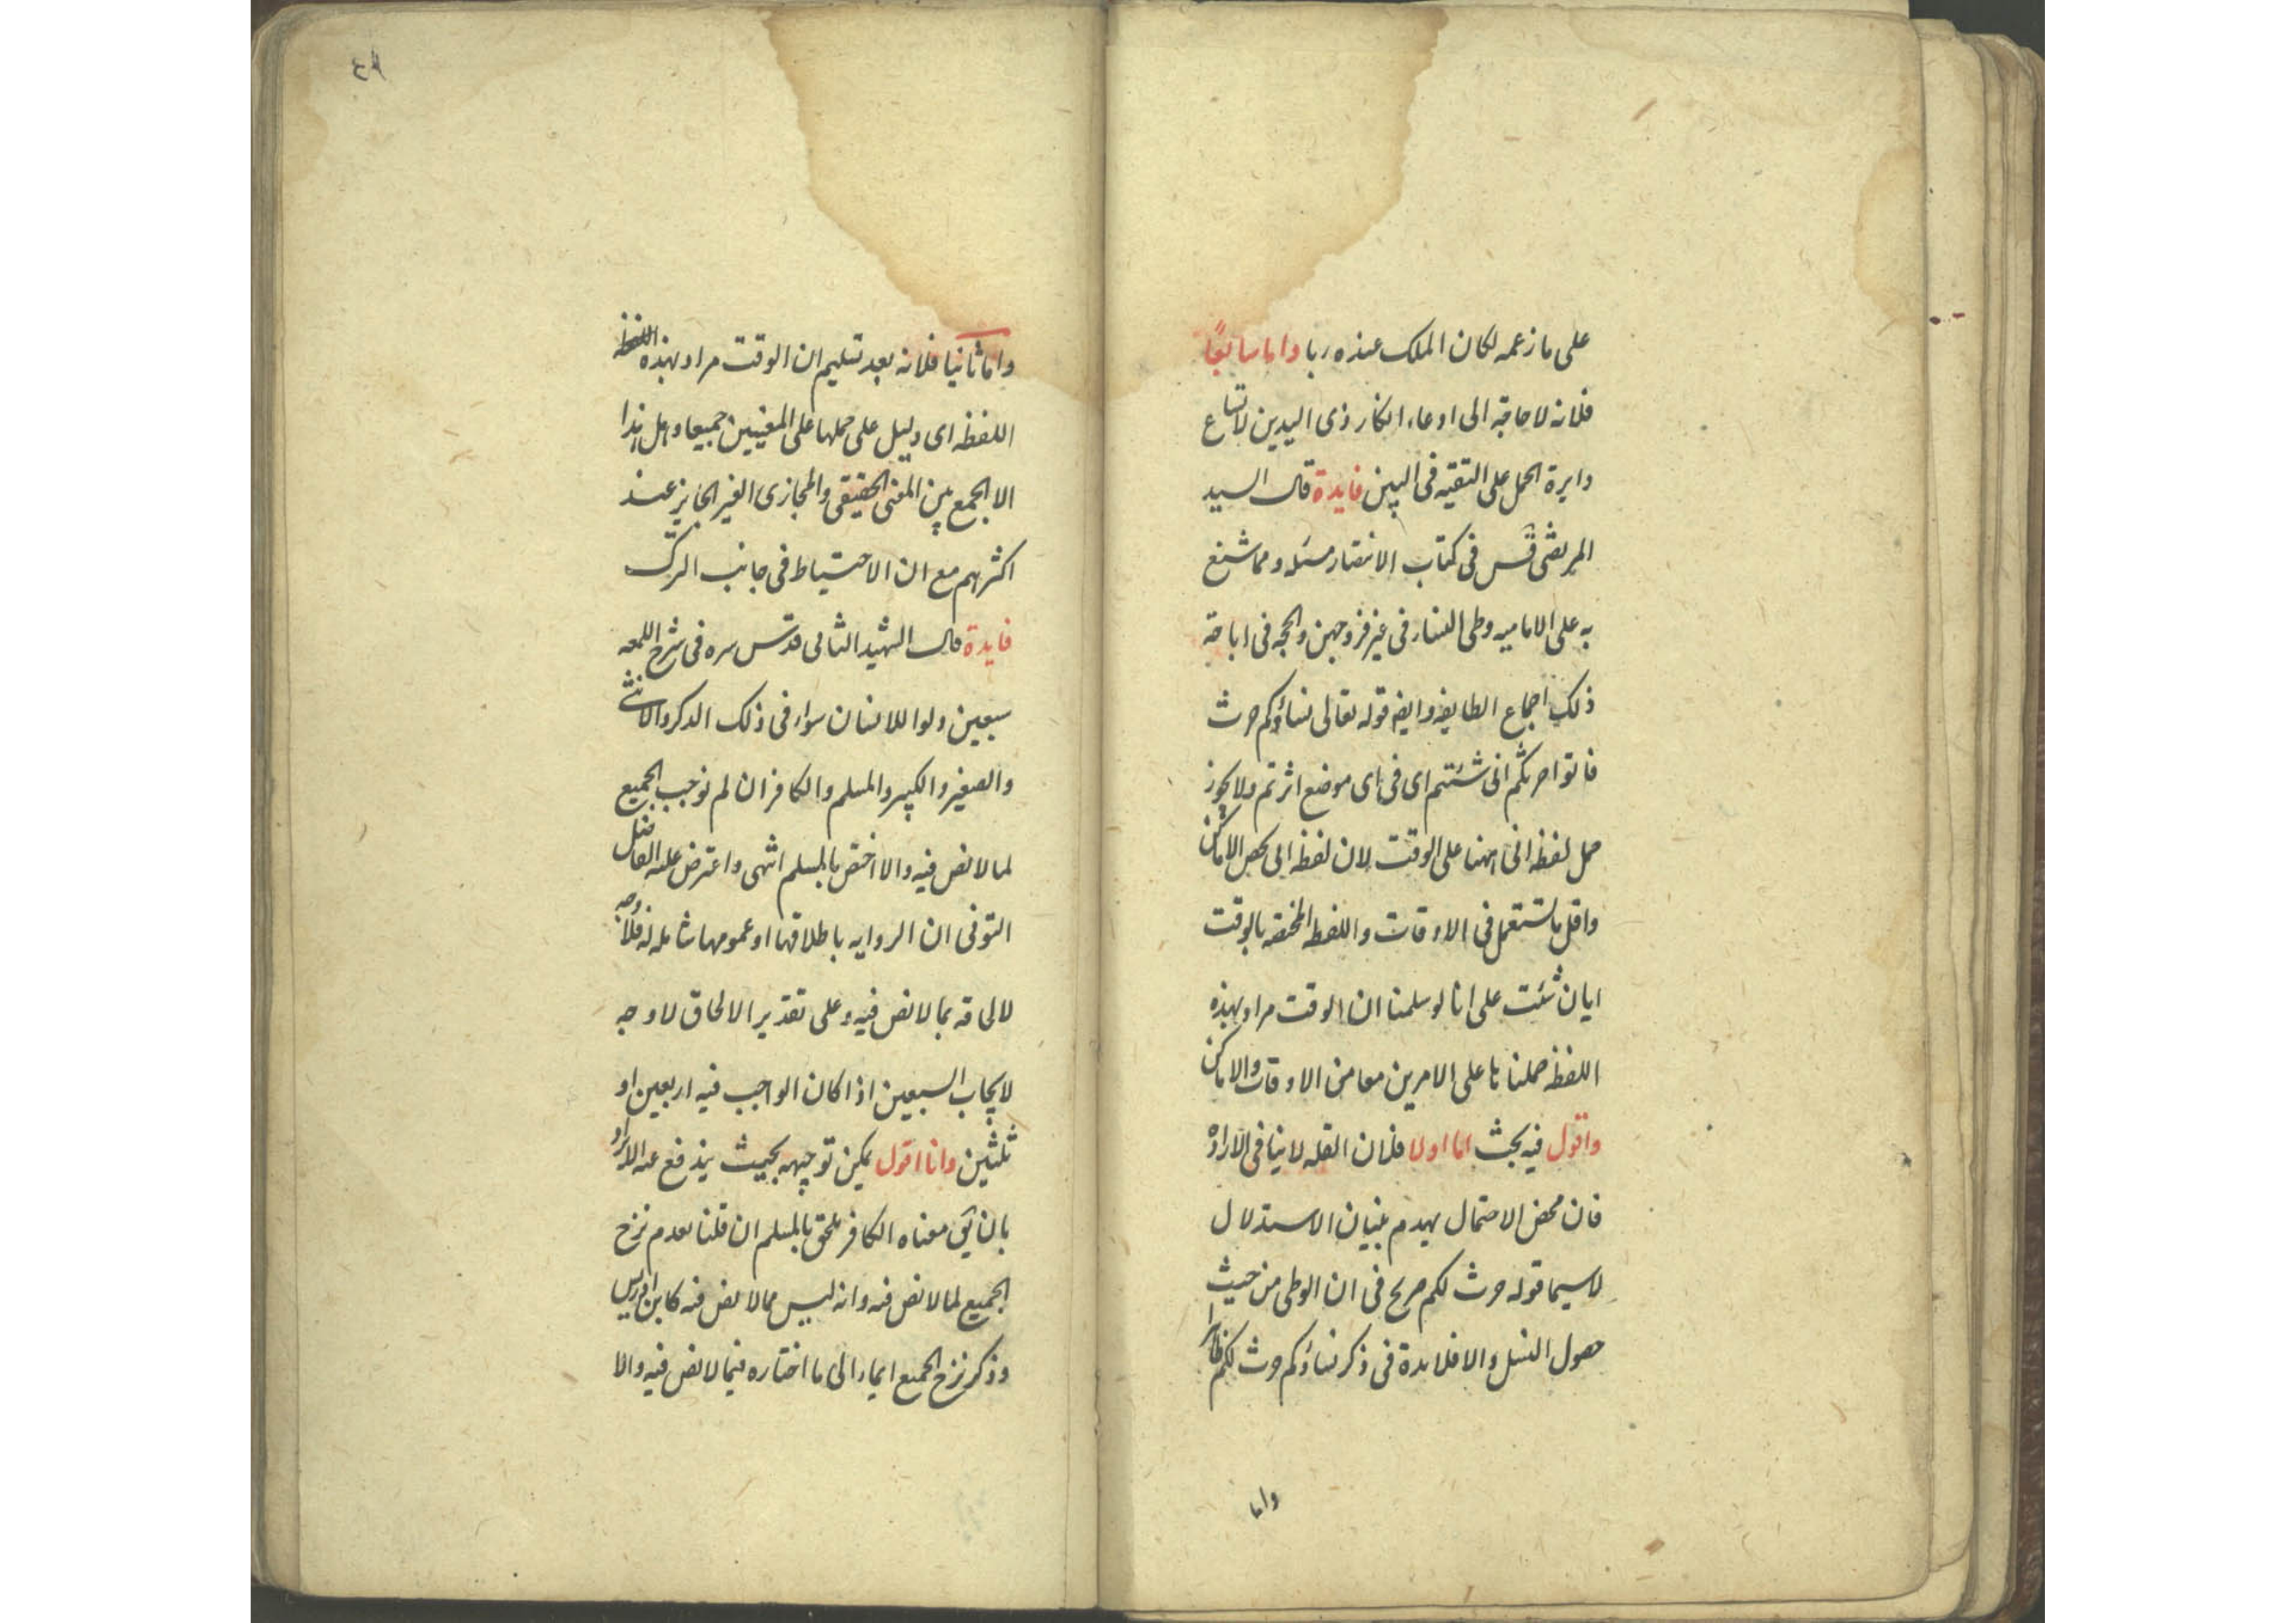 على ما زعمه لكان الملك عنده ربا واما سابعًا
فلانه لا حاجة الى ادعاء انكار ذى اليدين لاتساع
دايرة الحمل على التقيه فى البين فايدة قال السيد
المرتضى قس فى كتاب الانتصار مسئله ومما شنع
به على الاماميه وطى النساء فى غير فروجهن والحجه فى اباحة
ذلك اجماع الطايفه وايضه قوله تعالى نساؤكم حرث
فاتوا حرثكم انى شئتم اى فى اى موضع اثرتم ولا يجوز
حمل لفظه انى ههنا على الوقت لان لفظه انى تختص الاماكن
واقل ما تستعمل فى الاوقات واللفظه المختصه بالوقت
ايان شئت على انا لو سلمنا ان الوقت مراد بهذه
اللفظه حملناها على الامرين معا من الاوقات والاماكن
واقول فيه بحث اما اولا فلان القله لا ينافى الاراده
فان محض الاحتمال يهدم بنيان الاستدلال
لاسيما قوله حرث لكم صريح فى ان الوطى من حيث
حصول النسل والا فلا فايدة فى ذكر نساؤكم حرث لكم ظاهرا
واما
٤٥
واما ثانيا فلانه بعد تسليم ان الوقت مراد بهذه اللفظه
اللفظه اى دليل على حملها على المعنيين جميعا وهل هذا
الا الجمع بين المعنى الحقيقى والمجازى الغير الجايز عند
اكثرهم مع ان الاحتياط فى جانب الترك
فايدة قال الشهيد الثانى قدس سره فى شرح اللمعه
سبعين دلوا للانسان سواء فى ذلك الذكر والانثى
والصغير والكبير والمسلم والكافر ان لم نوجب الجميع
لما لا نص فيه والا اختص بالمسلم انتهى واعترض عليه الفاضل
التونى ان الروايه باطلاقها او عمومها شامله له فلا وجه
لالحاقه بما لا نص فيه وعلى تقدير الالحاق لا وجه
لايجاب السبعين اذا كان الواجب فيه اربعين او
ثلثين وانا اقول يمكن توجيهه بحيث يندفع عنه الايراد
بان يق معناه الكافر يلحق بالمسلم ان قلنا بعدم نزح
الجميع لما لا نص فيه وانه ليس مما لا نص فيه كابن ادريس
وذكر نزح الجميع ايماء الى ما اختاره فيما لا نص فيه والا